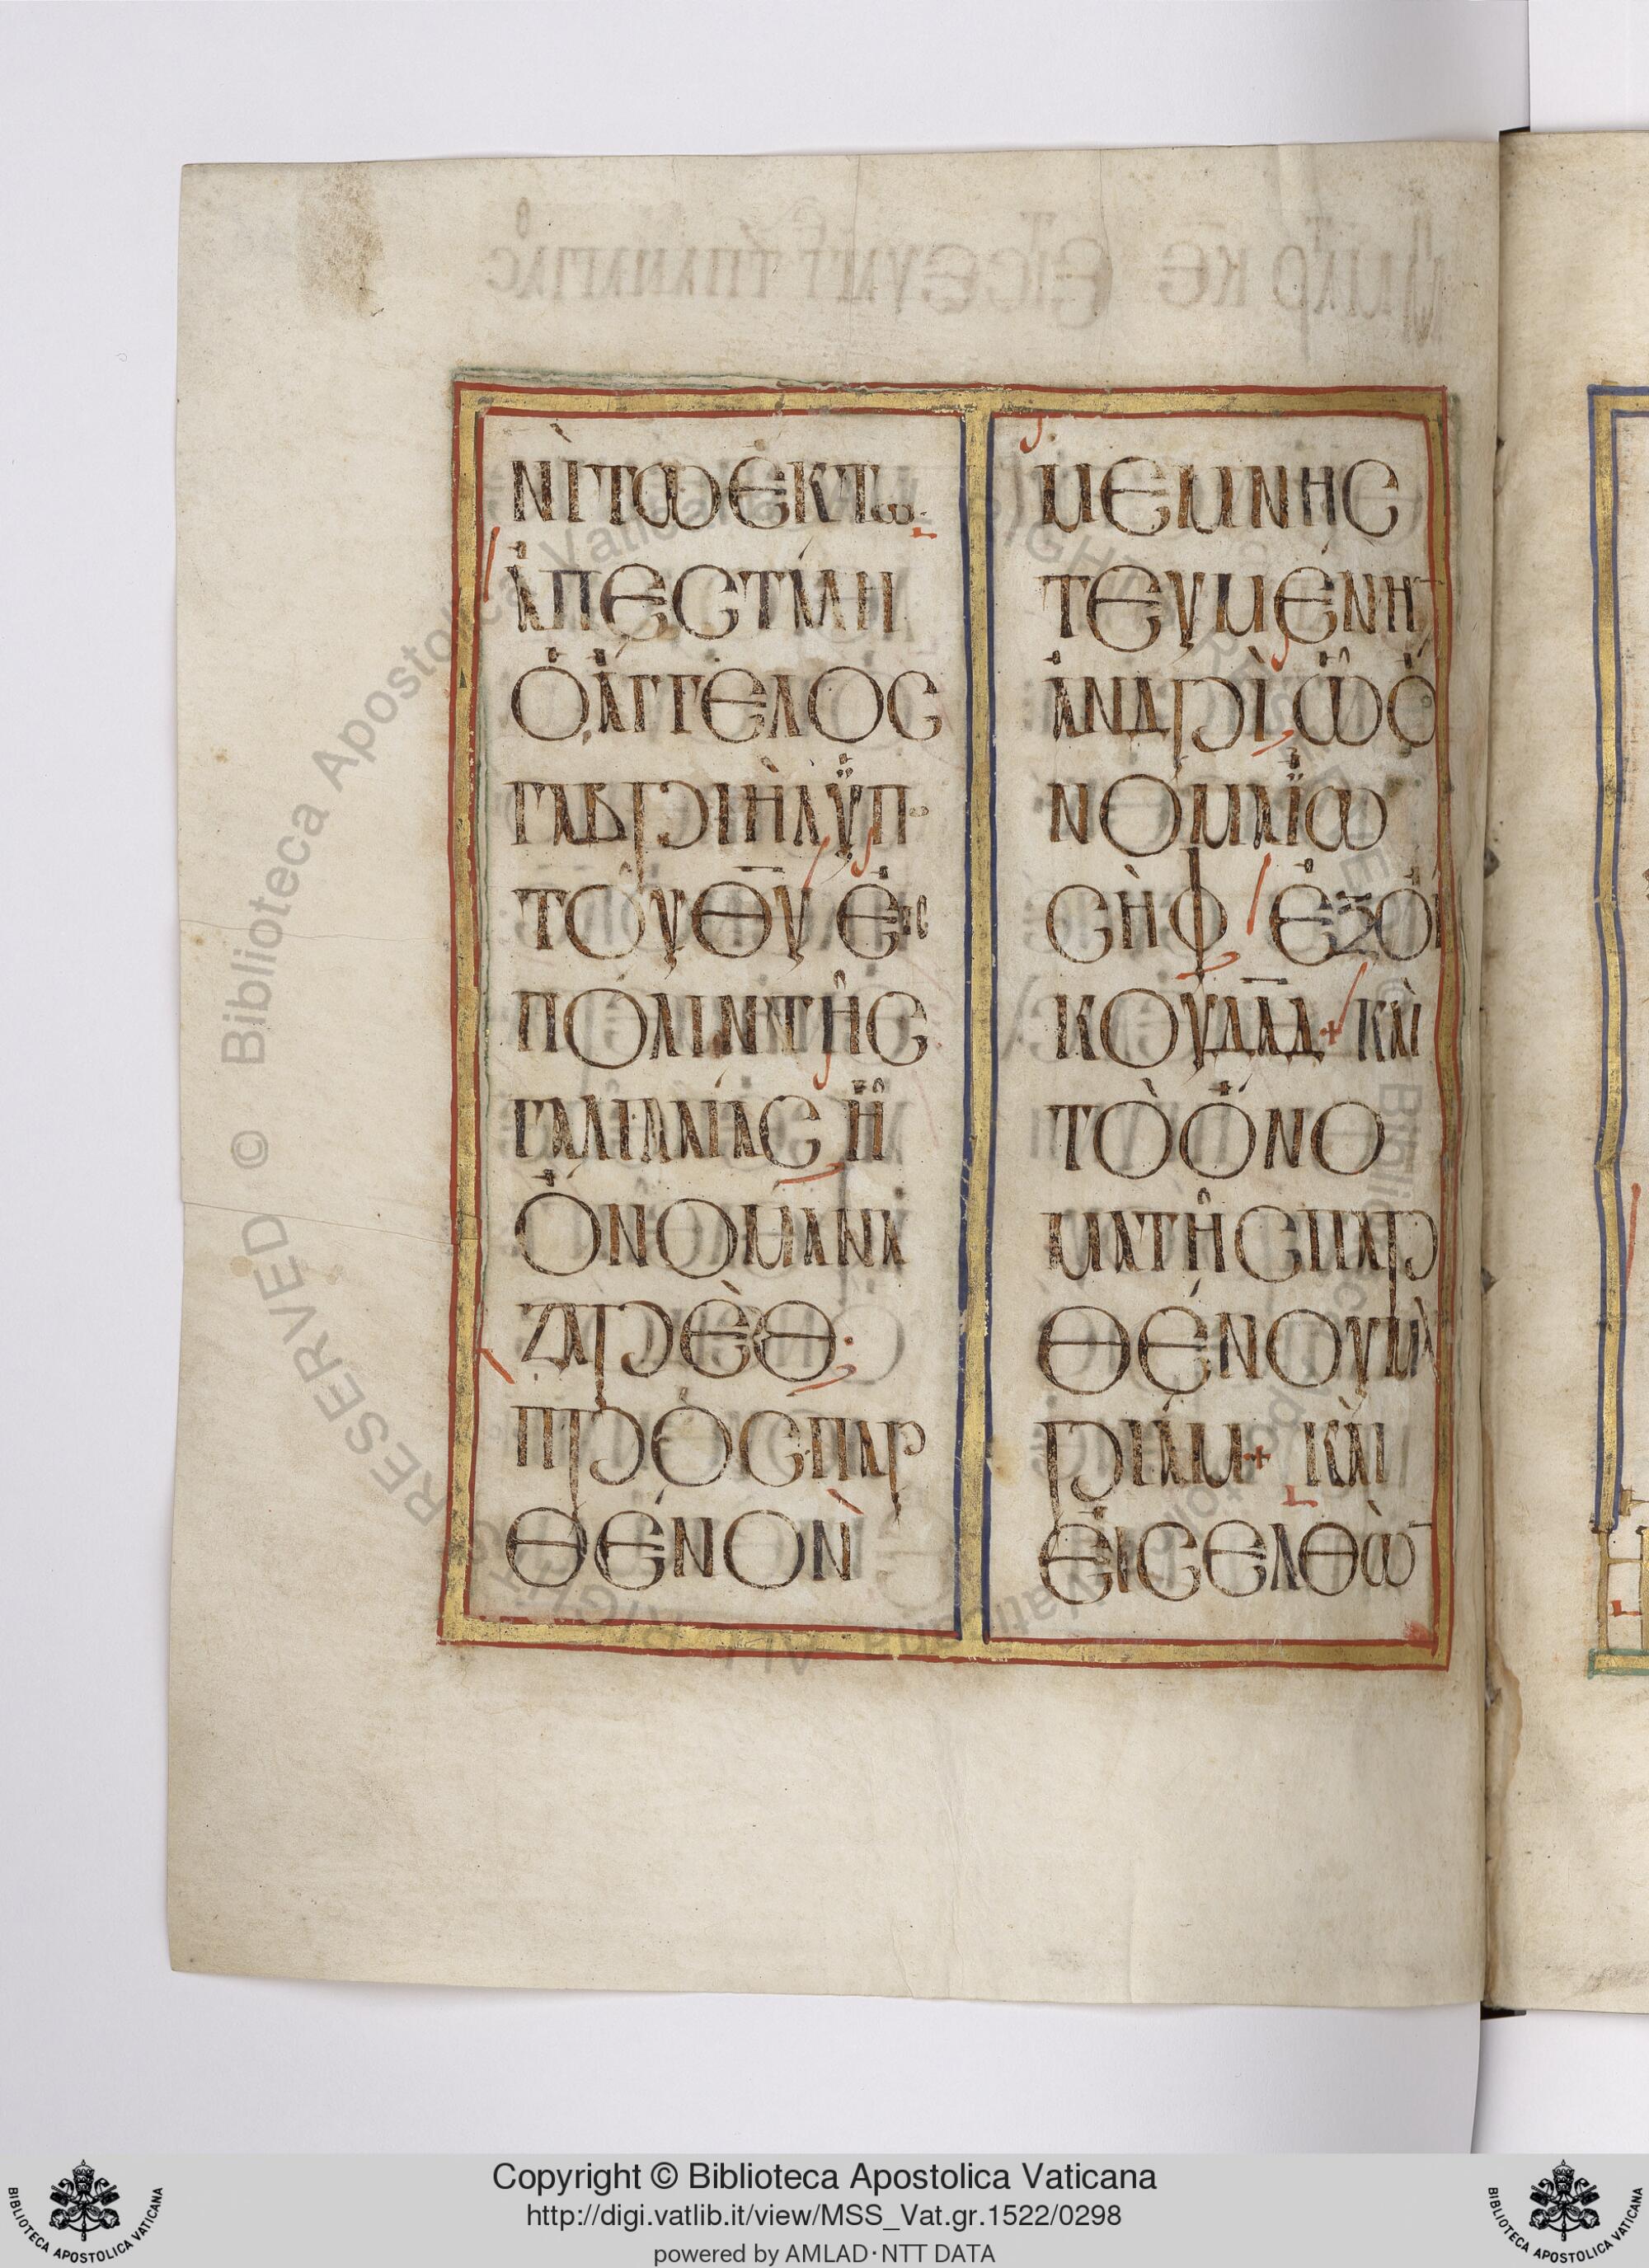 ΝῚΤΩΕΚΤω.
ἈΠΕϹΤΆΛΗ
ὉἌΓΓΕΛΟϹ
ΓΑΒΡΙῊΛὙΠ·
ΤΟΥ͂Θ̅Υ̅ ἘΙϹ
ΠΌΛΙΝΤΗ͂Ϲ
ΓΑΛΙΛΑΊΑϹ ἯΙ
ὌΝΟΜΑΝΑ
ΖΑΡῈΘ·
ΠΡῸϹΠΑΡ
ΘΈΝΟΝ
ΜΕΜΝΗϹ
ΤΕΥΜΈΝΗ̅
ἈΝΔΡῚ ὯὌ
ΝΟΜΑΪΩ
ϹῊΦ ἘΞΟΊ
ΚΟΥΔ̅Α̅Δ̅+ ΚΑῚ
ΤῸὌΝΟ
ΜΑΤΗ͂ϹΠΑΡ
ΘΈΝΟΥΜΑ
ΡΙΆΜ+ ΚΑῚ
ΕἸϹΕΛΘῺ̅
© Biblioteca Apostolica Vaticana ALL RIGHTS RESERVED
Copyright © Biblioteca Apostolica Vaticana
http://digi.vatlib.it/view/MSS_Vat.gr.1522/0298
powered by AMLAD·NTT DATA
BIBLIOTECA APOSTOLICA VATICANA
BIBLIOTECA APOSTOLICA VATICANA